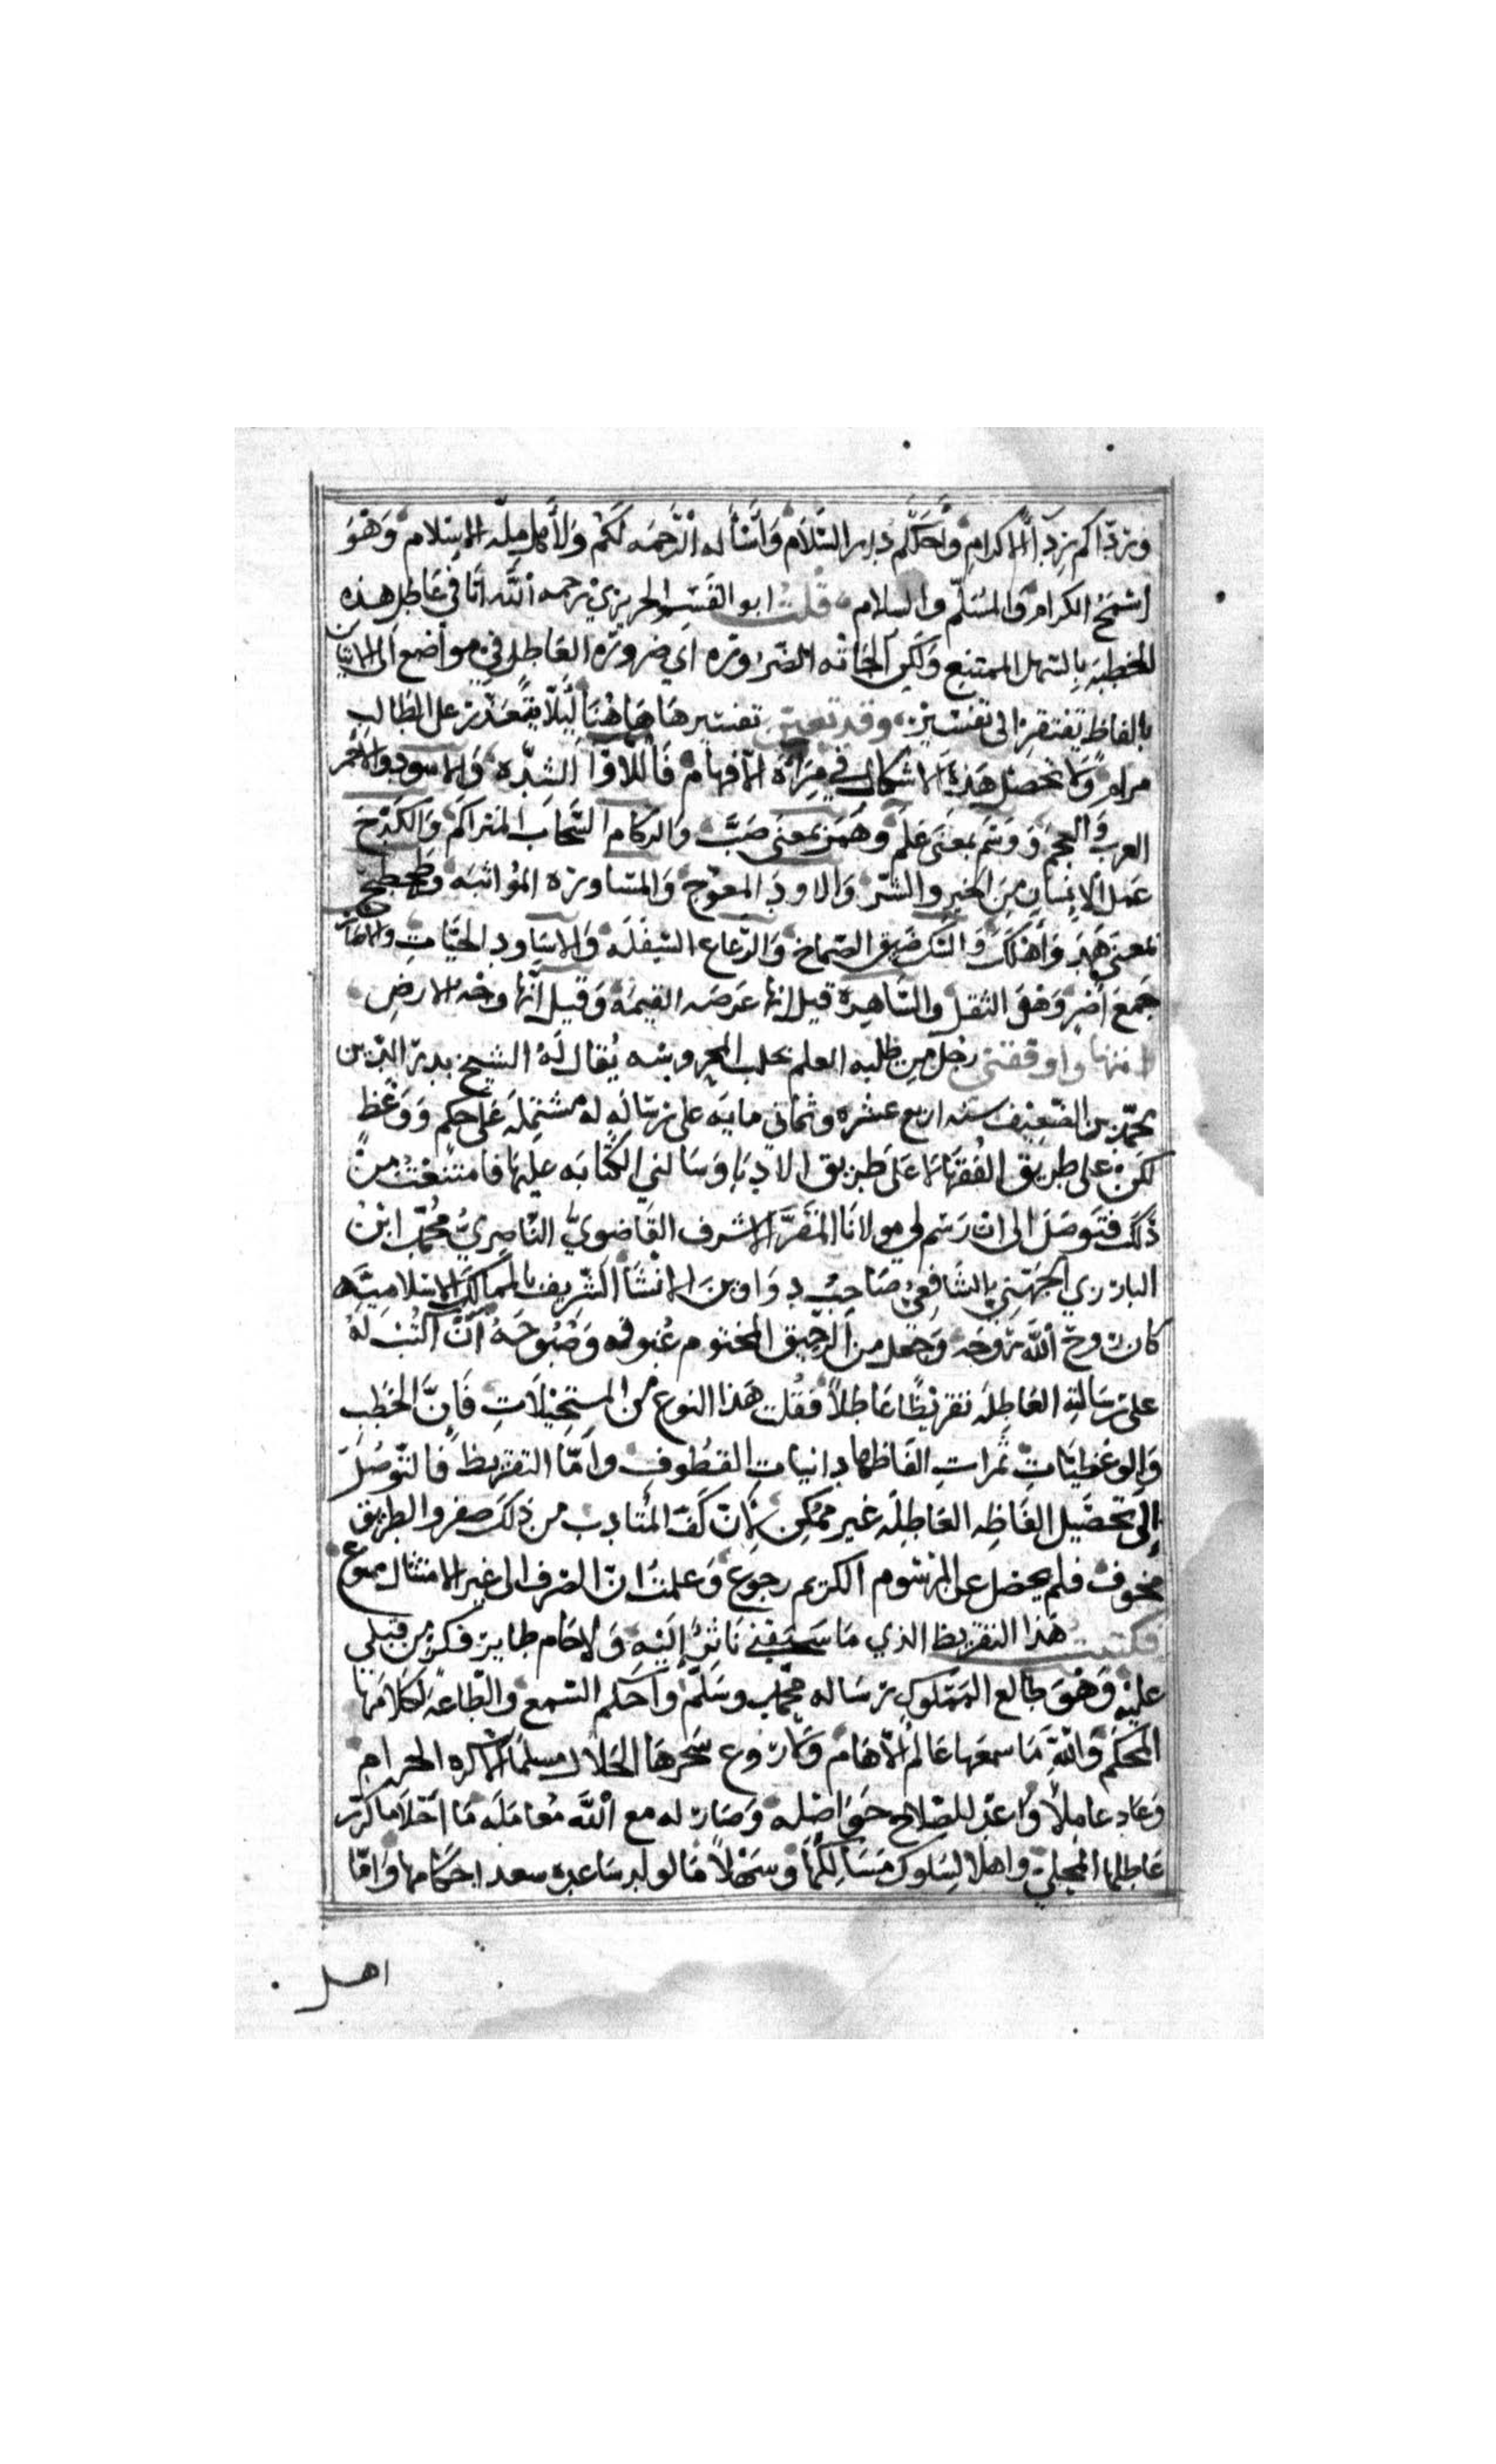 وردّاكم رداء الاكرام واحلّكم دار السّلام واسأله الرّحمه لكم ولأهل ملّه الاسلام وهو
اسمح الكرام والمسلّم والسلام قلت ابو القسم الحريري رحمه الله اتا في عاطل هذه
الخطبه بالسّهل الممتنع ولكن ألجاته الضّروره اي ضرورة العاطل في مواضع الى الاتيان
بالفاظ تفتقر الى تفسير وقد تعيّن تفسيرها هاهنا ليلّا يتعذّر على الطالب
مرام ولا تحصل هذه الاشكال في مرآة الأفهام فاللاوا الشدّه والاسود والاحمر
العرب والعجم ووسم بمعنى علم وهمر بمعنى صبّ والركام السّحاب المتراكم والكدح
عمل الانسان من الخير والشر والاود المعوج والمساوره المؤاثبه وطحطح
بمعنى هدر وأهلك والسّكك ضيق الصّماخ والرّعاع السّفله والاساود الحيّات والاصار
جمع أصر وهو الثقل والسّاهره قيل انها عرصه القيمه وقيل انّها وجه الارض
منها واوقفني رجل من طلبه العلم بحلب المحروسه يُقال له الشيخ بدر الدّين
محمّد بن الضعيف سنه اربع عشره وثماني مايه على رسالهٍ له مشتمله على حكم ووعظ
لكن على طريق الفقها لا على طريق الادبا وسالني الكتابه عليها فامتنعت من
ذلك فتوصّل الى ان رسم لي مولانا المقرّ الاشرف القاضويّ النّاصريّ محمّد ابن
البارزي الجهني الشافعي صاحب دواوين الانشا الشريف بالممالك الاسلاميّه
كان روح الله روحه وجعل من الرّحيق المختوم غبوقه وصبوحه أنّ اكتب له
على رسالته العاطله تقريظًا عاطلاً فقلت هذا النوع من المستحيلات فإنّ الخطب
والوعظيات ثمرات الفاظها دانيات القطوف وامّا التقريظ فالتّوصّل
إلى تحصيل الفاظه العاطله غير ممكن لأن كفّ المتادب من ذلك صفر والطريق
مخوف فلم يحصل عن المرسوم الكريم رجوع وعلمت انّ الصرف الى غير الامتثال ممنوع
فكتبت هذا التقريظ الذي ما سبقني ناثرٌ إليه ولا حام طاير فكر من قبلي
عليه وهو طالع المملوك رساله محمّد وسلّم واسلم السّمع والطاعة لكلامها
المحكم والله ما سمعها عالم إلّا هام ولا روع سحرها الحلال مسلما الا كره الحرام
وعاد عاملاً واعدّ للصّلاح حواصله وصار له مع الله مُعامله ما احلا ما كرّر
عاطلها المحلى واهلا لسلوك مسالكها وسهلاً مالولد ساعده سعد احكامها وامّا
اهل